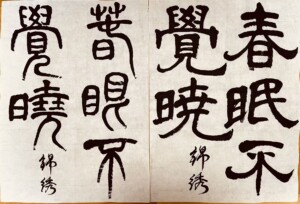 春眠不
覺曉
錦綉
萅眠不
覺曉
錦綉